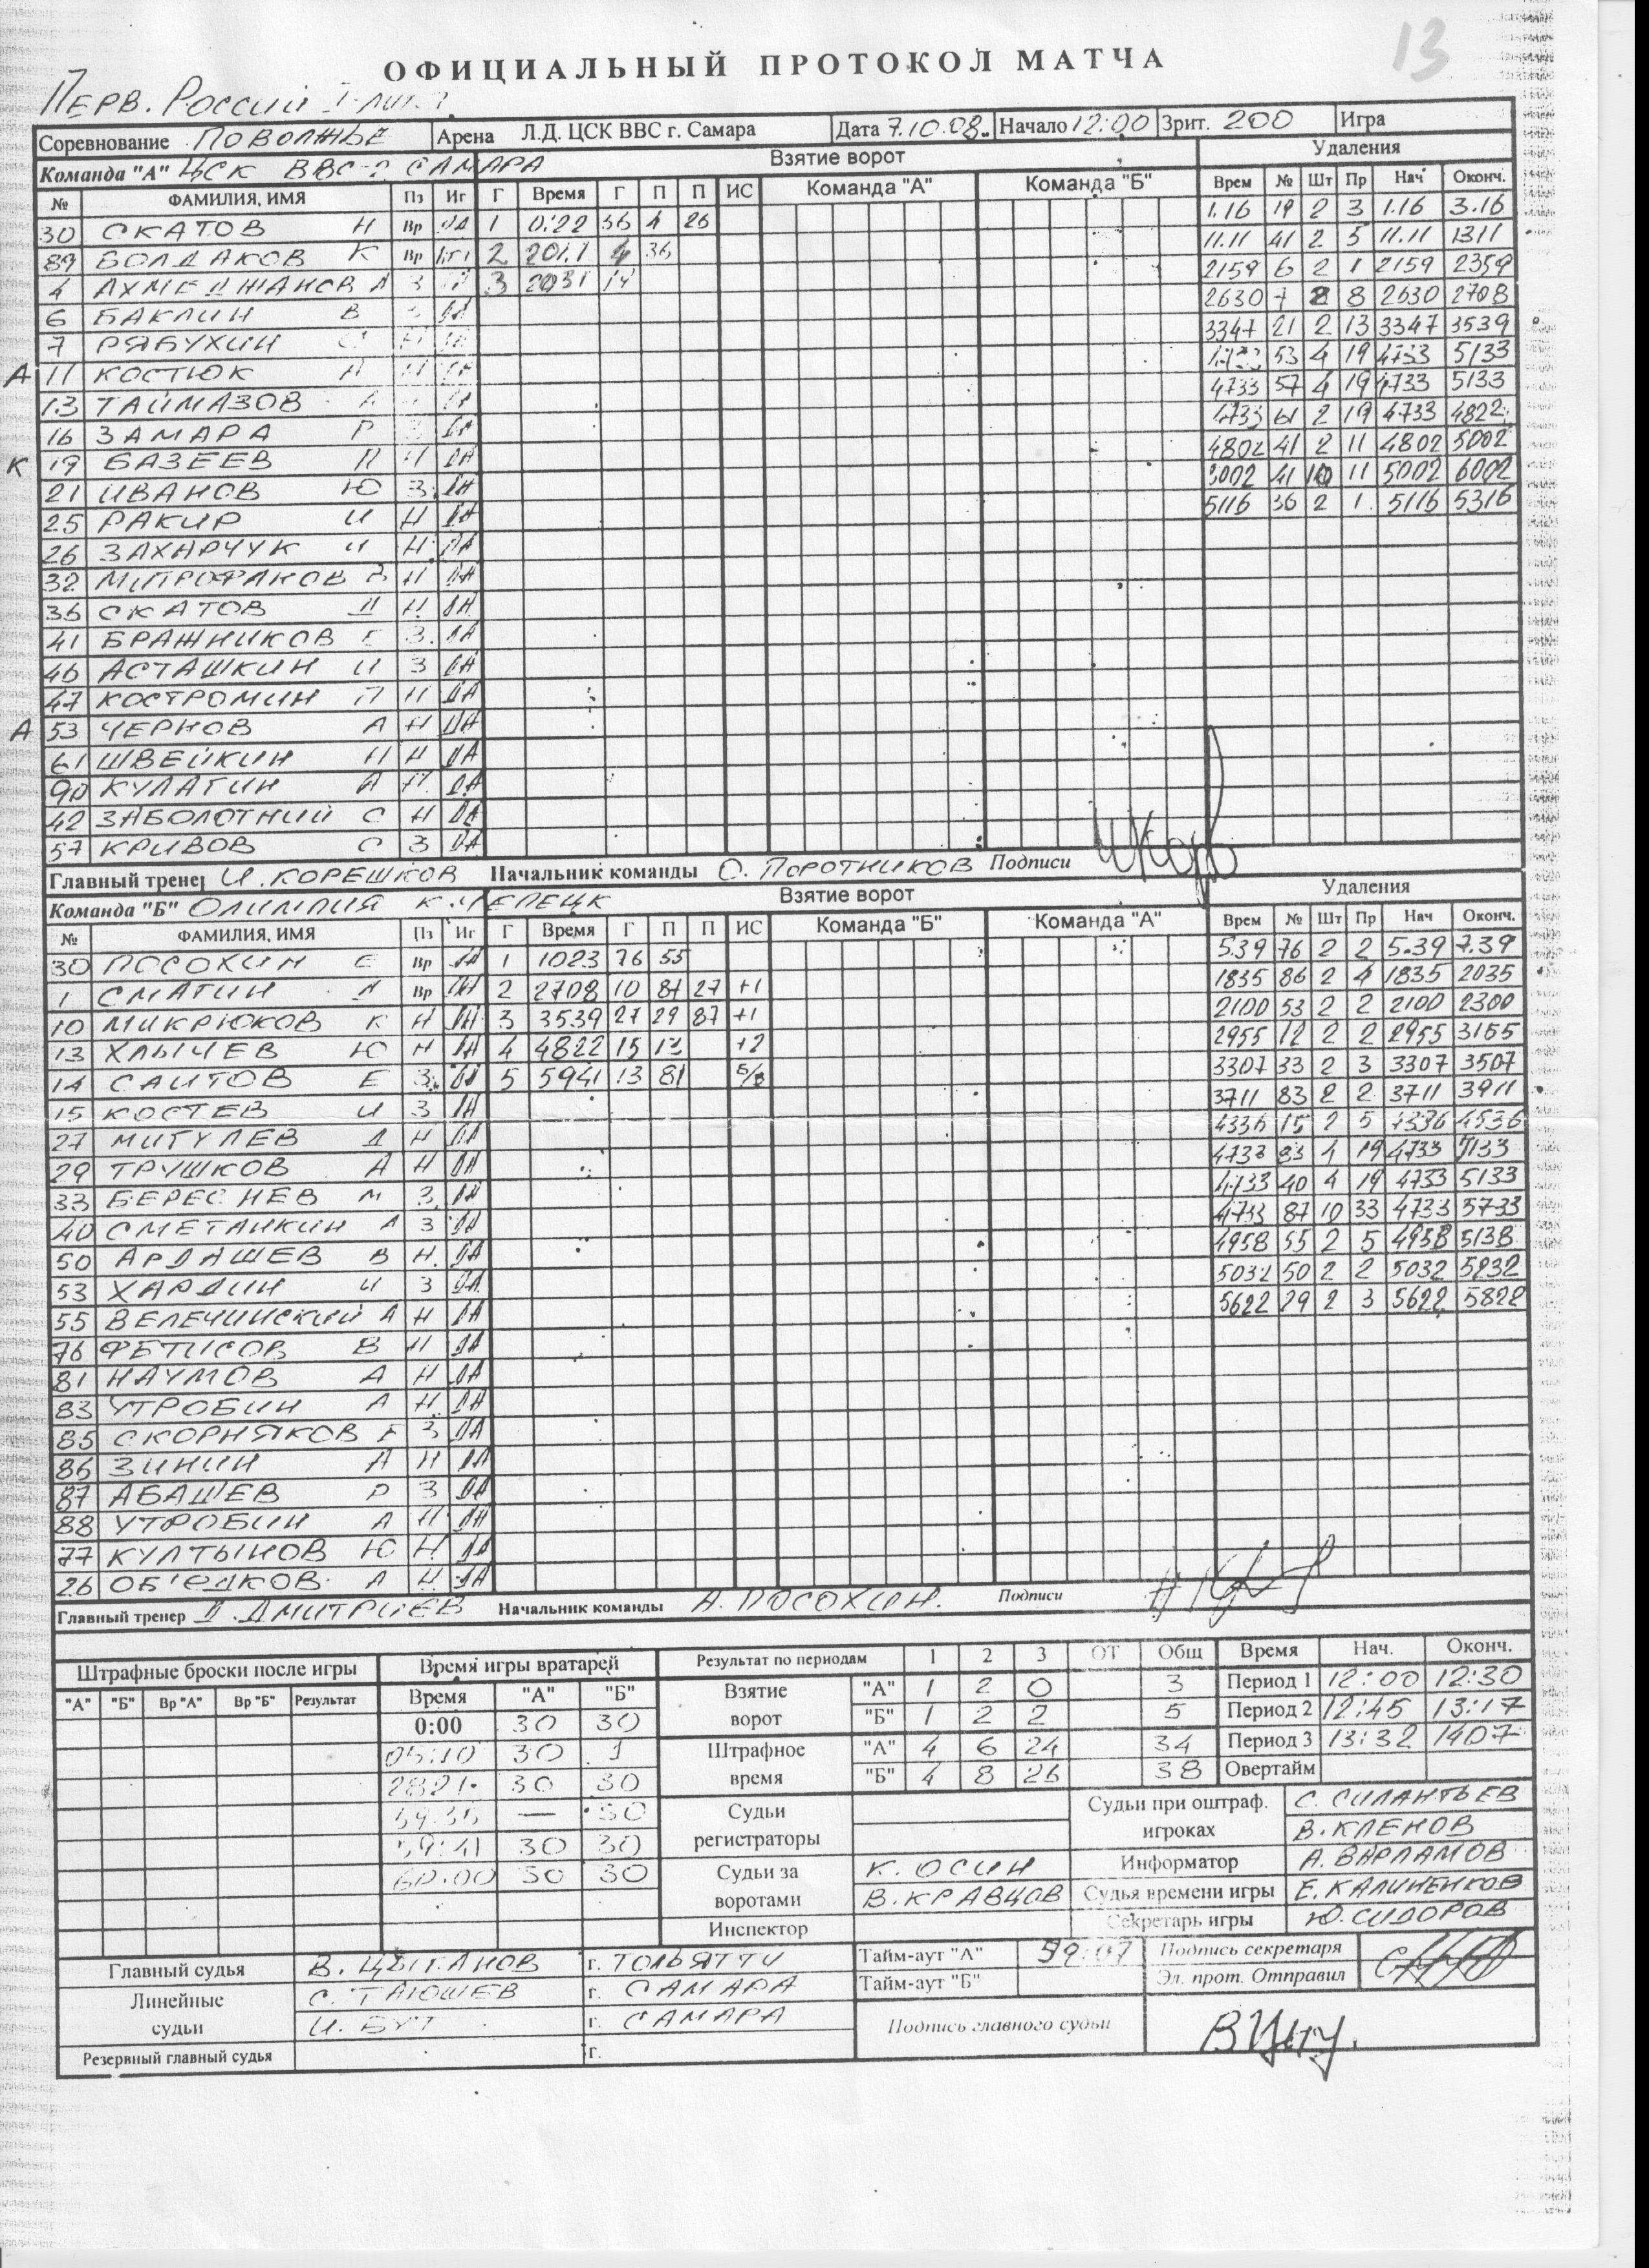 13
ОФИЦИАЛЬНЫЙ ПРОТОКОЛ МАТЧА
ПЕРВ. РОССИИ
Соревнование ПОВОЛЖЬЕ Арена Л.Д. ЦСК ВВС г. Самара Дата 7.10.08. Начало 12:00 Зрит. 200 Игра
Команда "А" ЦСК ВВС-2 САМАРА Взятие ворот Удаления
№ ФАМИЛИЯ, ИМЯ Пз Иг Г Время Г П П ИС Команда "А" Команда "Б" Врем № Шт Пр Нач Оконч.
30 СКАТОВ Н Вр ДА 1 0:22 36 4 26 1.16 19 2 3 1.16 3.16
89 БОЛДАКОВ К Вр 2 2011 4 36 11.11 41 2 5 11.11 1311
4 АХМЕДЖАНОВ А З 3 2031 19 2159 6 2 1 2159 2359
6 БАКЛИН В З ДА 2630 7 2 8 2630 2708
7 РЯБУХИН 3347 21 2 13 3347 3539
А 11 КОСТЮК 53 4 19 4733 5133
13 ТАЙМАЗОВ А 4733 57 4 19 4733 5133
16 ЗАМАРА Р З ДА 4733 61 2 19 4733 4822
К 19 БАЗЕЕВ П Н ДА 4802 41 2 11 4802 5002
21 ИВАНОВ Ю З ДА 5002 41 10 11 5002 6002
25 РАКИР И Н ДА 5116 36 2 1 5116 5316
26 ЗАХАРЧУК И Н ДА
32 МИТРОФАНОВ Н ДА
36 СКАТОВ Д Н ДА
41 БРАЖНИКОВ Е З ДА
46 АСТАШКИН И З ДА
47 КОСТРОМИН П Н ДА
А 53 ЧЕРНОВ А Н ДА
61 ШВЕЙКИН Н Н ДА
90 КУЛАГИН А Н ДА
42 ЗАБОЛОТНИЙ С Н ДА
57 КРИВОВ С З ДА
Главный тренер И. КОРЕШКОВ Начальник команды О. ПОРОТНИКОВ Подписи
Команда "Б" ОЛИМПИЯ К-ЧЕПЕЦК Взятие ворот Удаления
№ ФАМИЛИЯ, ИМЯ Пз Иг Г Время Г П П ИС Команда "Б" Команда "А" Врем № Шт Пр Нач Оконч.
30 ПОСОХИН Е Вр ДА 1 1023 76 55 5.39 76 2 2 5.39 7.39
1 СМАГИН А Вр ДА 2 2708 10 87 27 +1 1835 86 2 4 1835 2035
10 МИКРЮКОВ К Н ДА 3 3539 27 29 87 +1 2100 53 2 2 2100 2300
13 ХЛЫЧЕВ Ю Н ДА 4 4822 15 13 +2 2955 12 2 2 2955 3155
14 САИТОВ Е З ДА 5 5941 13 81 3307 33 2 3 3307 3507
15 КОСТЕВ И З ДА 3711 83 2 2 3711 3911
27 МИГУЛЕВ Д Н ДА 4336 15 2 5 4336 4536
29 ТРУШКОВ А Н ДА 4733 83 4 19 4733 5133
33 БЕРЕСНЕВ М З ДА 4733 40 4 19 4733 5133
40 СМЕТАНКИН А З ДА 4733 87 10 33 4733 5733
50 АРДАШЕВ В Н ДА 4958 55 2 5 4958 5138
53 ХАРДИН И З ДА 5032 50 2 2 5032 5232
55 ВЕЛЕЧИНСКИЙ А Н ДА 5622 29 2 3 5622 5822
76 ФЕТИСОВ В Н ДА
81 НАУМОВ А Н ДА
83 УТРОБИН А Н ДА
85 СКОРНЯКОВ Е З ДА
86 ЗИНИН А Н ДА
87 АБАШЕВ Р З ДА
88 УТРОБИН А Н ДА
77 КУЛТЫНОВ Ю Н ДА
26 ОБ'ЕДКОВ А Н ДА
Главный тренер Д. ДМИТРИЕВ Начальник команды А. ПОСОХИН. Подписи
Штрафные броски после игры Время игры вратарей Результат по периодам 1 2 3 ОТ Общ Время Нач. Оконч.
"А" "Б" Вр "А" Вр "Б" Результат Время "А" "Б" Взятие ворот "А" 1 2 0 3 Период 1 12:00 12:30
0:00 30 30 "Б" 1 2 2 5 Период 2 12:45 13:17
05:10 30 1 Штрафное время "А" 4 6 24 34 Период 3 13:32 1407
2821 30 30 "Б" 4 8 26 38 Овертайм
59:36 — 30 Судьи регистраторы Судьи при оштраф. игроках С. СИЛАНТЬЕВ
59:41 30 30 В. КЛЕНОВ
60:00 30 30 Судьи за воротами К. ОСИН Информатор А. ВАРЛАМОВ
В. КРАВЦОВ Судья времени игры Е. КАЛИНЕНКОВ
Инспектор Секретарь игры Ю. СИДОРОВ
Главный судья В. ЦЫГАНОВ г. ТОЛЬЯТТИ Тайм-аут "А" 59:07 Подпись секретаря
Линейные судьи С. ТАЮШЕВ г. САМАРА Тайм-аут "Б" Эл. прот. Отправил
И. БУТ г. САМАРА Подпись главного судьи
Резервный главный судья г.